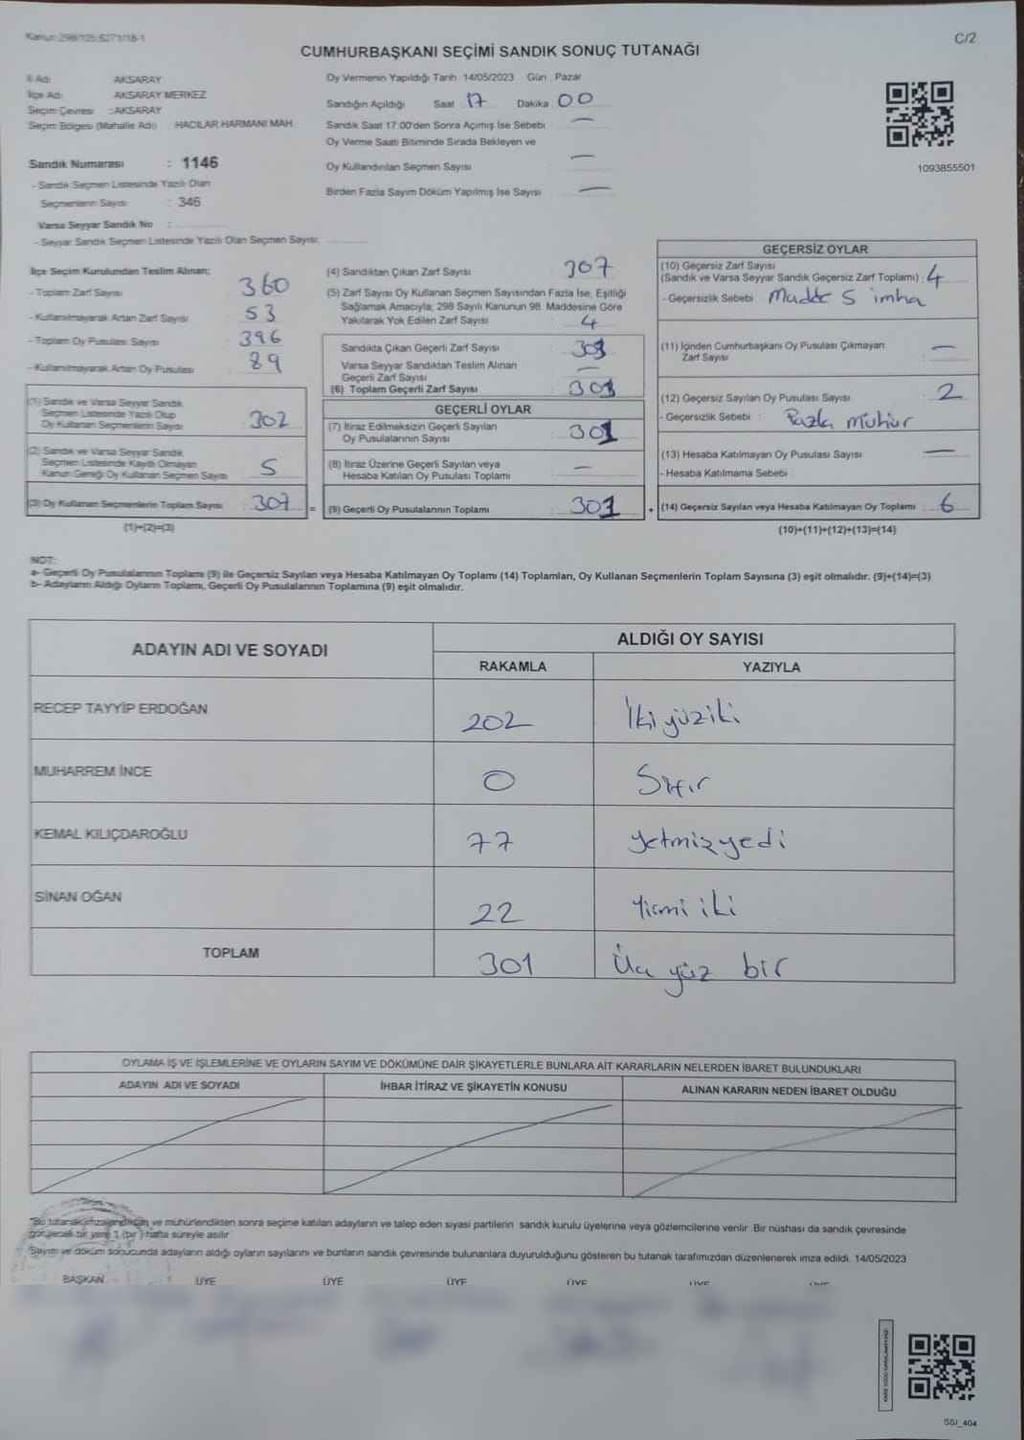 Kanun:298/105;6271/18-1
C/2
CUMHURBAŞKANI SEÇİMİ SANDIK SONUÇ TUTANAĞI
İl Adı AKSARAY
İlçe Adı AKSARAY MERKEZ
Seçim Çevresi :AKSARAY
Seçim Bölgesi (Mahalle Adı) : HACILAR HARMANI MAH.
Oy Vermenin Yapıldığı Tarih 14/05/2023 Gün Pazar
Sandığın Açıldığı Saat 17 Dakika 00
Sandık Saat 17:00'den Sonra Açımış İse Sebebi —
Oy Verme Saati Bitiminde Sırada Bekleyen ve
Oy Kullandırılan Seçmen Sayısı —
Birden Fazla Sayım Döküm Yapılmış İse Sayısı —
1093855501
Sandık Numarası : 1146
- Sandık Seçmen Listesinde Yazılı Olan
Seçmenlerin Sayısı : 346
Varsa Seyyar Sandık No :
- Seyyar Sandık Seçmen Listesinde Yazılı Olan Seçmen Sayısı:
İlçe Seçim Kurulundan Teslim Alınan:
- Toplam Zarf Sayısı 360
- Kullanılmayarak Artan Zarf Sayısı 53
- Toplam Oy Pusulası Sayısı 396
- Kullanılmayarak Artan Oy Pusulası 89
(1) Sandık ve Varsa Seyyar Sandık
Seçmen Listesinde Yazılı Olup
Oy Kullanan Seçmenlerin Sayısı 302
(2) Sandık ve Varsa Seyyar Sandık
Seçmen Listesinde Kayıtlı Olmayan
Kanun Gereği Oy Kullanan Seçmen Sayısı 5
(3) Oy Kullanan Seçmenlerin Toplam Sayısı 307 =
(1)+(2)=(3)
(4) Sandıktan Çıkan Zarf Sayısı 307
(5) Zarf Sayısı Oy Kullanan Seçmen Sayısından Fazla İse; Eşitliği
Sağlamak Amacıyla; 298 Sayılı Kanunun 98. Maddesine Göre
Yakılarak Yok Edilen Zarf Sayısı 4
Sandıkta Çıkan Geçerli Zarf Sayısı
Varsa Seyyar Sandıktan Teslim Alınan
Geçerli Zarf Sayısı —
(6) Toplam Geçerli Zarf Sayısı
GEÇERLİ OYLAR
(7) İtiraz Edilmeksizin Geçerli Sayılan
Oy Pusulalarının Sayısı 301
(8) İtiraz Üzerine Geçerli Sayılan veya
Hesaba Katılan Oy Pusulası Toplamı —
(9) Geçerli Oy Pusulalarının Toplamı 301 +
GEÇERSİZ OYLAR
(10) Geçersiz Zarf Sayısı
(Sandık ve Varsa Seyyar Sandık Geçersiz Zarf Toplamı) : 4
- Geçersizlik Sebebi : Madde 5 imha
(11) İçinden Cumhurbaşkanı Oy Pusulası Çıkmayan
Zarf Sayısı —
(12) Geçersiz Sayılan Oy Pusulası Sayısı 2
- Geçersizlik Sebebi : Fazla Mühür
(13) Hesaba Katılmayan Oy Pusulası Sayısı —
- Hesaba Katılmama Sebebi
(14) Geçersiz Sayılan veya Hesaba Katılmayan Oy Toplamı 6
(10)+(11)+(12)+(13)=(14)
NOT:
a- Geçerli Oy Pusulalarının Toplamı (9) ile Geçersiz Sayılan veya Hesaba Katılmayan Oy Toplamı (14) Toplamları, Oy Kullanan Seçmenlerin Toplam Sayısına (3) eşit olmalıdır. (9)+(14)=(3)
b- Adayların Aldığı Oyların Toplamı, Geçerli Oy Pusulalarının Toplamına (9) eşit olmalıdır.
ADAYIN ADI VE SOYADI
ALDIĞI OY SAYISI
RAKAMLA YAZIYLA
RECEP TAYYİP ERDOĞAN 202 İki yüz iki
MUHARREM İNCE 0 Sıfır
KEMAL KILIÇDAROĞLU 77 yetmiş yedi
SİNAN OĞAN 22 Yirmi iki
TOPLAM 301 Üç yüz bir
OYLAMA İŞ VE İŞLEMLERİNE VE OYLARIN SAYIM VE DÖKÜMÜNE DAİR ŞİKAYETLERLE BUNLARA AİT KARARLARIN NELERDEN İBARET BULUNDUKLARI
ADAYIN ADI VE SOYADI İHBAR İTİRAZ VE ŞİKAYETİN KONUSU ALINAN KARARIN NEDEN İBARET OLDUĞU
"Bu tutanak imzalandıktan ve mühürlendikten sonra seçime katılan adayların ve talep eden siyasi partilerin sandık kurulu üyelerine veya gözlemcilerine verilir. Bir nüshası da sandık çevresinde
görülecek bir yere 1 (bir) hafta süreyle asılır
Sayım ve döküm sonucunda adayların aldığı oyların sayılarını ve bunların sandık çevresinde bulunanlara duyurulduğunu gösteren bu tutanak tarafımızdan düzenlenerek imza edildi. 14/05/2023
BAŞKAN ÜYE ÜYE ÜYE ÜYE ÜYE ÜYE
SSI_404